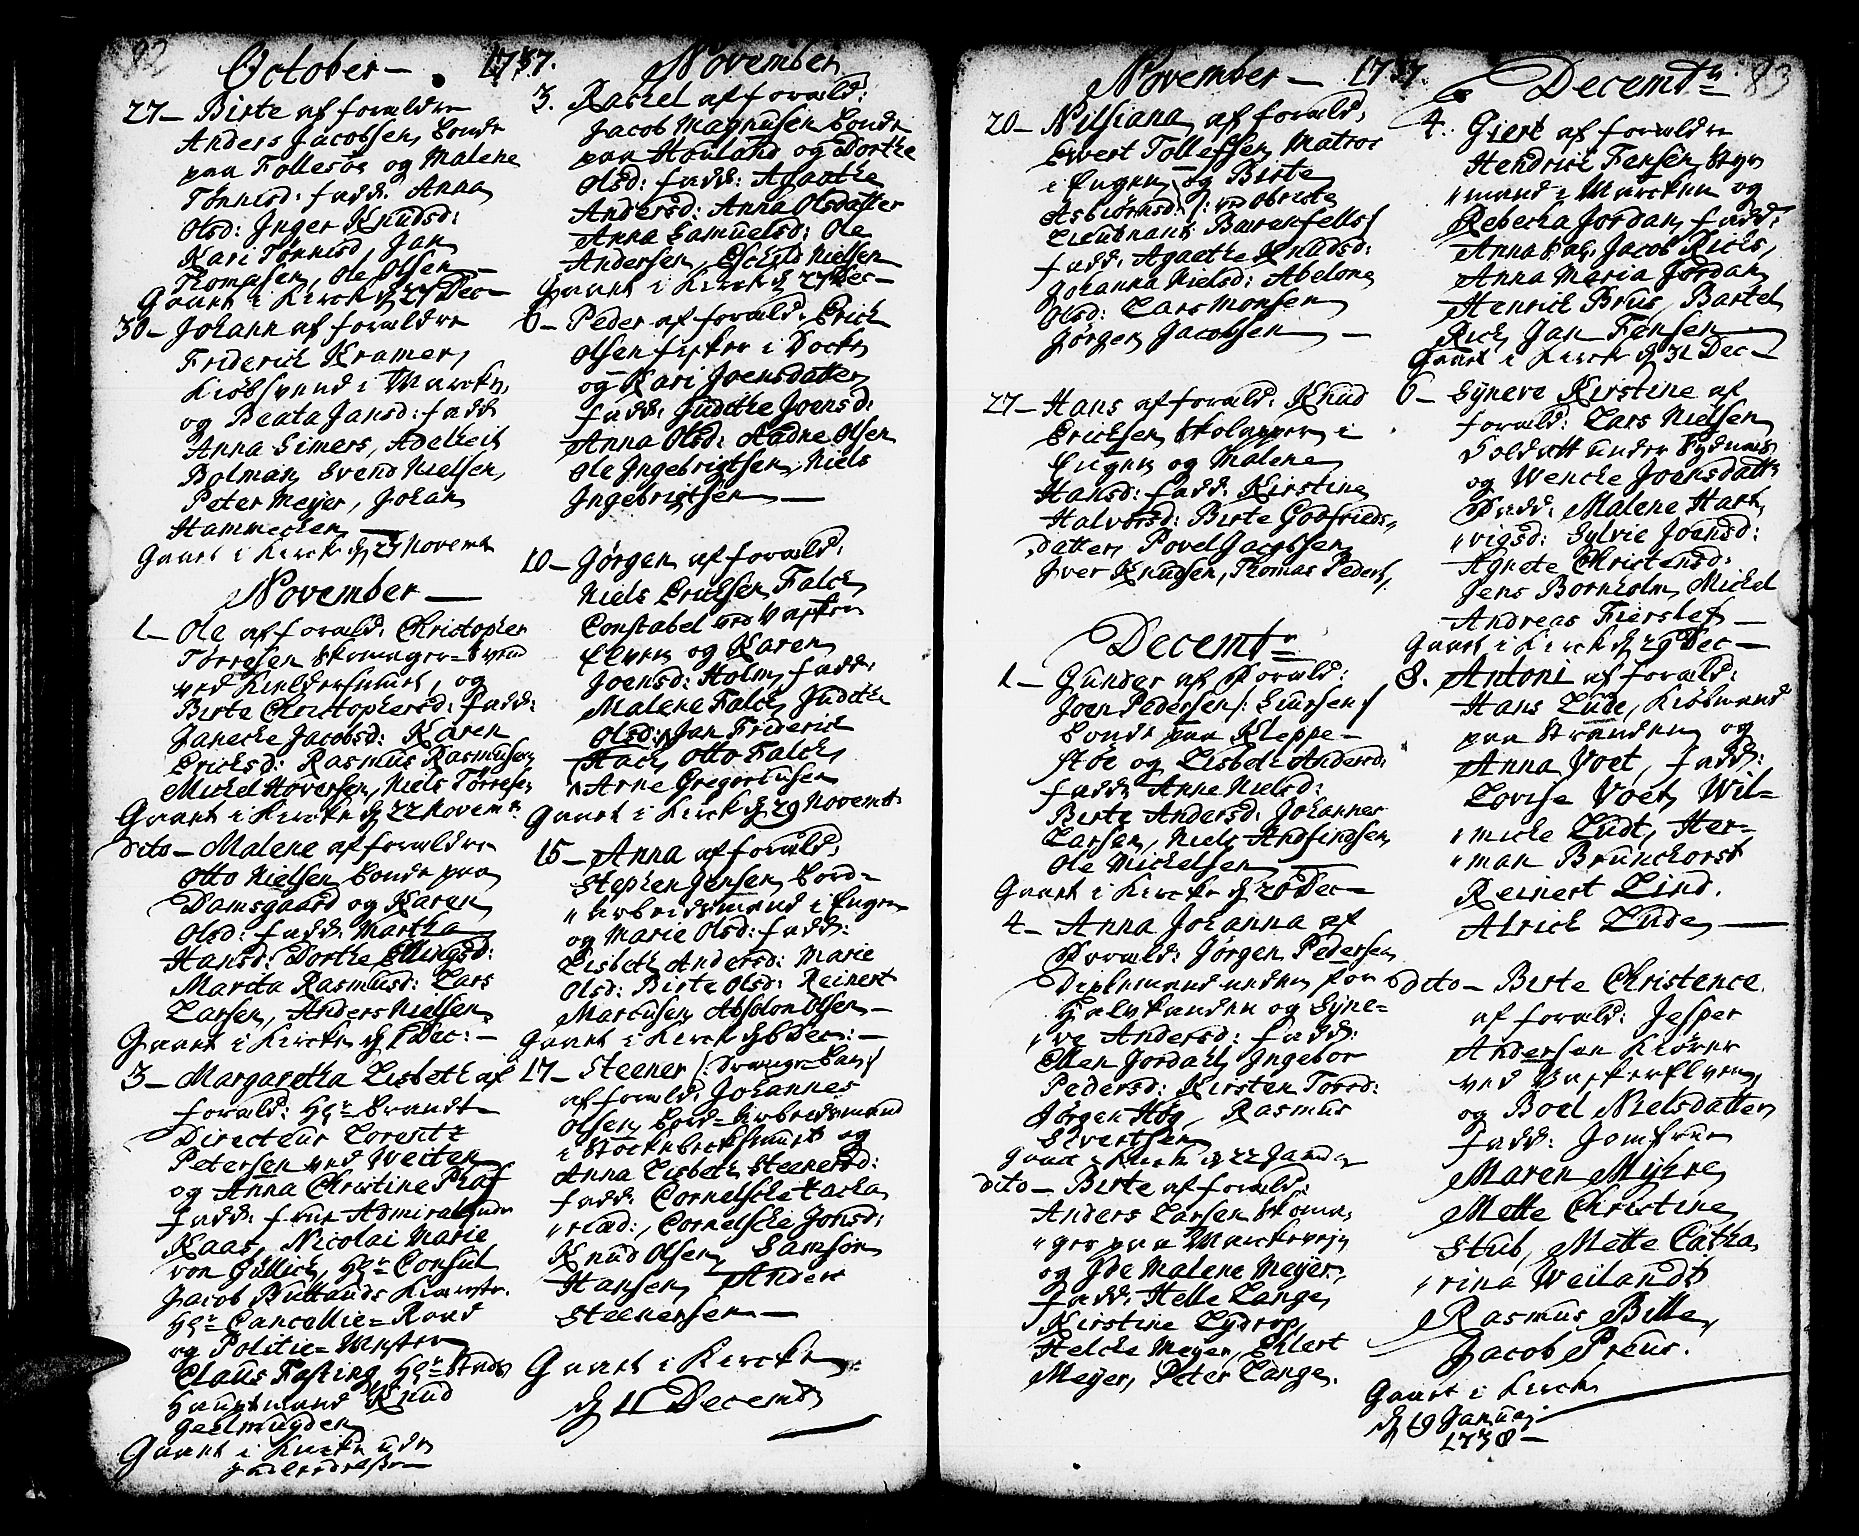 82
October — . 1737.
27 — Birte af forældre
Anders Jacobsen bonde
paa Follesøe og Malene
Tønnisd: fadd: Anna
Olsd: Inger Knudsd:
Kari Tønnisd, Jan
Thomasen, Ole Olsen —
Gaaet i Kircke d 27 Dec —
30 — Johann af forældre
Friderich Kramer,
Kiøbsvend i Marcken,
og Beata Jansd: fadd:
Anna Simers, Adelheit
Bolman, Svend Nielsen,
Peter Meyer, Johan
Hammecken —
Gaaet i Kircke d 29 Novemb
November —
1 — Ole af foræld: Christopher
Tørresen Skomager-Svend
ved , og
Birte Christophersd: fadd:
Janecke Jacobsd: Karen
Ericksd: Rasmus Rasmusen,
Mickel Hoversen, Niels Tørresen
Gaaet i Kircke d 22 Novemr
dito — Malene af forældre
Otto Nielsen bonde paa
Damsgaard og Karen
Olsd: fadd: Martha
Hansd: Dorthe Ellingsd:
Marita Rasmusd: Lars
Larsen, Anders Nielsen
Gaaet i Kircke d 1 Dec: —
3 — Margaretha Lisbeth af
foræld: Hr brandt
Directeur Lorentz
Petersen ved Weiten
og Anna Christine Plaf
fadd: frue Admiralinde
Kaas, Nicolai Marie
von Güllich, Hr Consul
Jacob Büttauds
Hr Cancellie-Raad
og Politie-Mester
Claus Fasting, Hr Stads
Hauptmand Knud
Geelmuyden
Gaaet i Kircke uden

November
3. Rachel af foræld:
Jacob Magnusen bonde
paa Houland og Dorthe
Olsd: fadd: Agaathe
Andersd: Anna Olsdatter
Anna Samuelsd: Ole
Andersen, Eschild Nielsen
Gaaet i Kirck d 27 Dec —
6 — Peder af foræld: Erich
Olsen fisker i Docken
og Kari Joensdatter
fadd: Judithe Joensd:
Anna Olsd: Aadne Olsen
Ole Ingebrigtsen, Niels
Ingebrigtsen —
10 — Jørgen af foræld:
Niels Ericksen Falch
Constabel ved Vaster
Elven og Karen
Joensd: Holm, fadd:
Malene Falch, Judithe
Olsd: Jan Friderich
Hack, Otto Falch,
Arne Gregoriusen
Gaaet i Kirck d 29 Novemb
15 — Anna af foræld:
Stephen Jensen bord-
arbeidsmand i Engen
og Marie Olsd: fadd:
Lisbeth Andersd: Marie
Olsd: Birte Olsd: Reinert
Marcusen, Absolon Olsen —
Gaaet i Kirck d 6 Dec: —
17 — Steener /: Drenge barn /
af foræld: Johannes
Olsen, bord-Arbeidsmand
i og
Anna Lisbeth Steenersd:
fadd: Cornelscke
Cornelscke Jonsd:
Knud Olsen, Samson
Hansen, Anders
Steenersen —
Gaaet i Kircke
d 11 Decemb

November — 1737.
20 — Nilsiana af foræld:
Ewert Tollefsen Matros
i Engen og Birte
Asbiørnsd: /: ved Obriste
Lieutnant Bærenfells /
fadd: Agaethe Knudsd:
Johanna Nielsd: Abelone
Olsd: Lars Monsen
Jørgen Jacobsen —
27 — Hans af foræld: Knud
Ericksen i
Engen og Malene
Hansd: fadd: Kirstine
Halvorsd: Birte Godfrieds-
datter, Povel Jacobsen
Iver Knudsen, Thomas Peders,
Decembr
1 — Gunder af Foræld:
Joen Pedersen /: Siursen /
bonde paa Kleppe-
støe og Lisbet Andersd:
fadd: Anne Nielsd:
Birte Andersd: Johannes
Larsen, Niels Andfindsen,
Ole Mickelsen
Gaaet i Kircke d 20 Dec —
4 — Anna Johanna af
Foræld: Jørgen Pedersen
for
og Syne-
ve Andersd: fadd:
Ellen Jordahl, Ingebor
Pedersd: Kirsten Torsd:
Jørgen Høg, Rasmus
Sivertsen
Gaaet i Kirck d 22 Janda
dito — Birte af foræld:
Anders Larsen Skoma-
ger paa Marckevejen
og Ide Malene Meyer,
fadd: Helle Lange,
Kirstine Lydrop,
Helche Meyer, Ehlert
Meyer, Peter Lange.

Decembr 83
4. Giert af forældre
Hendrick Fensen Styr-
mand i Marcken og
Rebecka Jordan, fadd:
Anna , Jacob Ricks,
Anna Maria Jordan
Henrich Brus, Bartel
Rick, Jan Fensen
Gaaet i Kirck d 31 Dec —
6 — Syneve Kirstine af
foræld: Lars Nielsen
Soldatt under
og Wencke Joensdatt
Fadd: Malene Hart-
vigsd: Sylvie Joensd:
Agnete Christensd:
Jens Bornholm, Mickel
Andreas Fierslef —
Gaaet i Kirck d 29 Dec —
8. Antoni af foræld:
Hans Lüde, Kiøbmand
paa Stranden og
Anna Voet, fadd:
Lovise Voet, Wil-
micke Lüdt, Her-
man Brunckhorst
Reinert Lind.
Alrich Lüde —
dito — Birte Christence
af foræld: Jesper
Andersen
ved Vasterelven,
og Boel Nielsdatter
fadd: Jomfrue
Maren Myhre,
Mette Christine
Stub, Mette Catha-
rina Weilandt
Rasmus Bille,
Jacob Preus.
Gaaet i Kirck
d 19 Januaj
1738 —